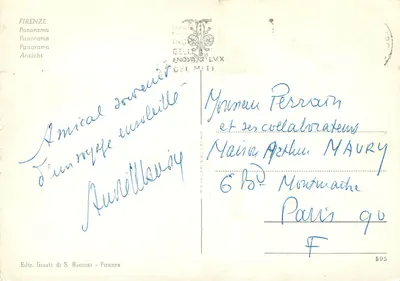 FIRENZE
Panorama
Panorama
Panorama
Ansicht
DELLE
LVX
DEI MITI
Amical souvenir
d'un voyage ensoleillé
Monsieur Perrain
et ses collaborateurs
Maison Arthur MAURY
6 Bd Montmartre
Paris 9e
F
Ediz. Innocenti di S. - Firenze
595